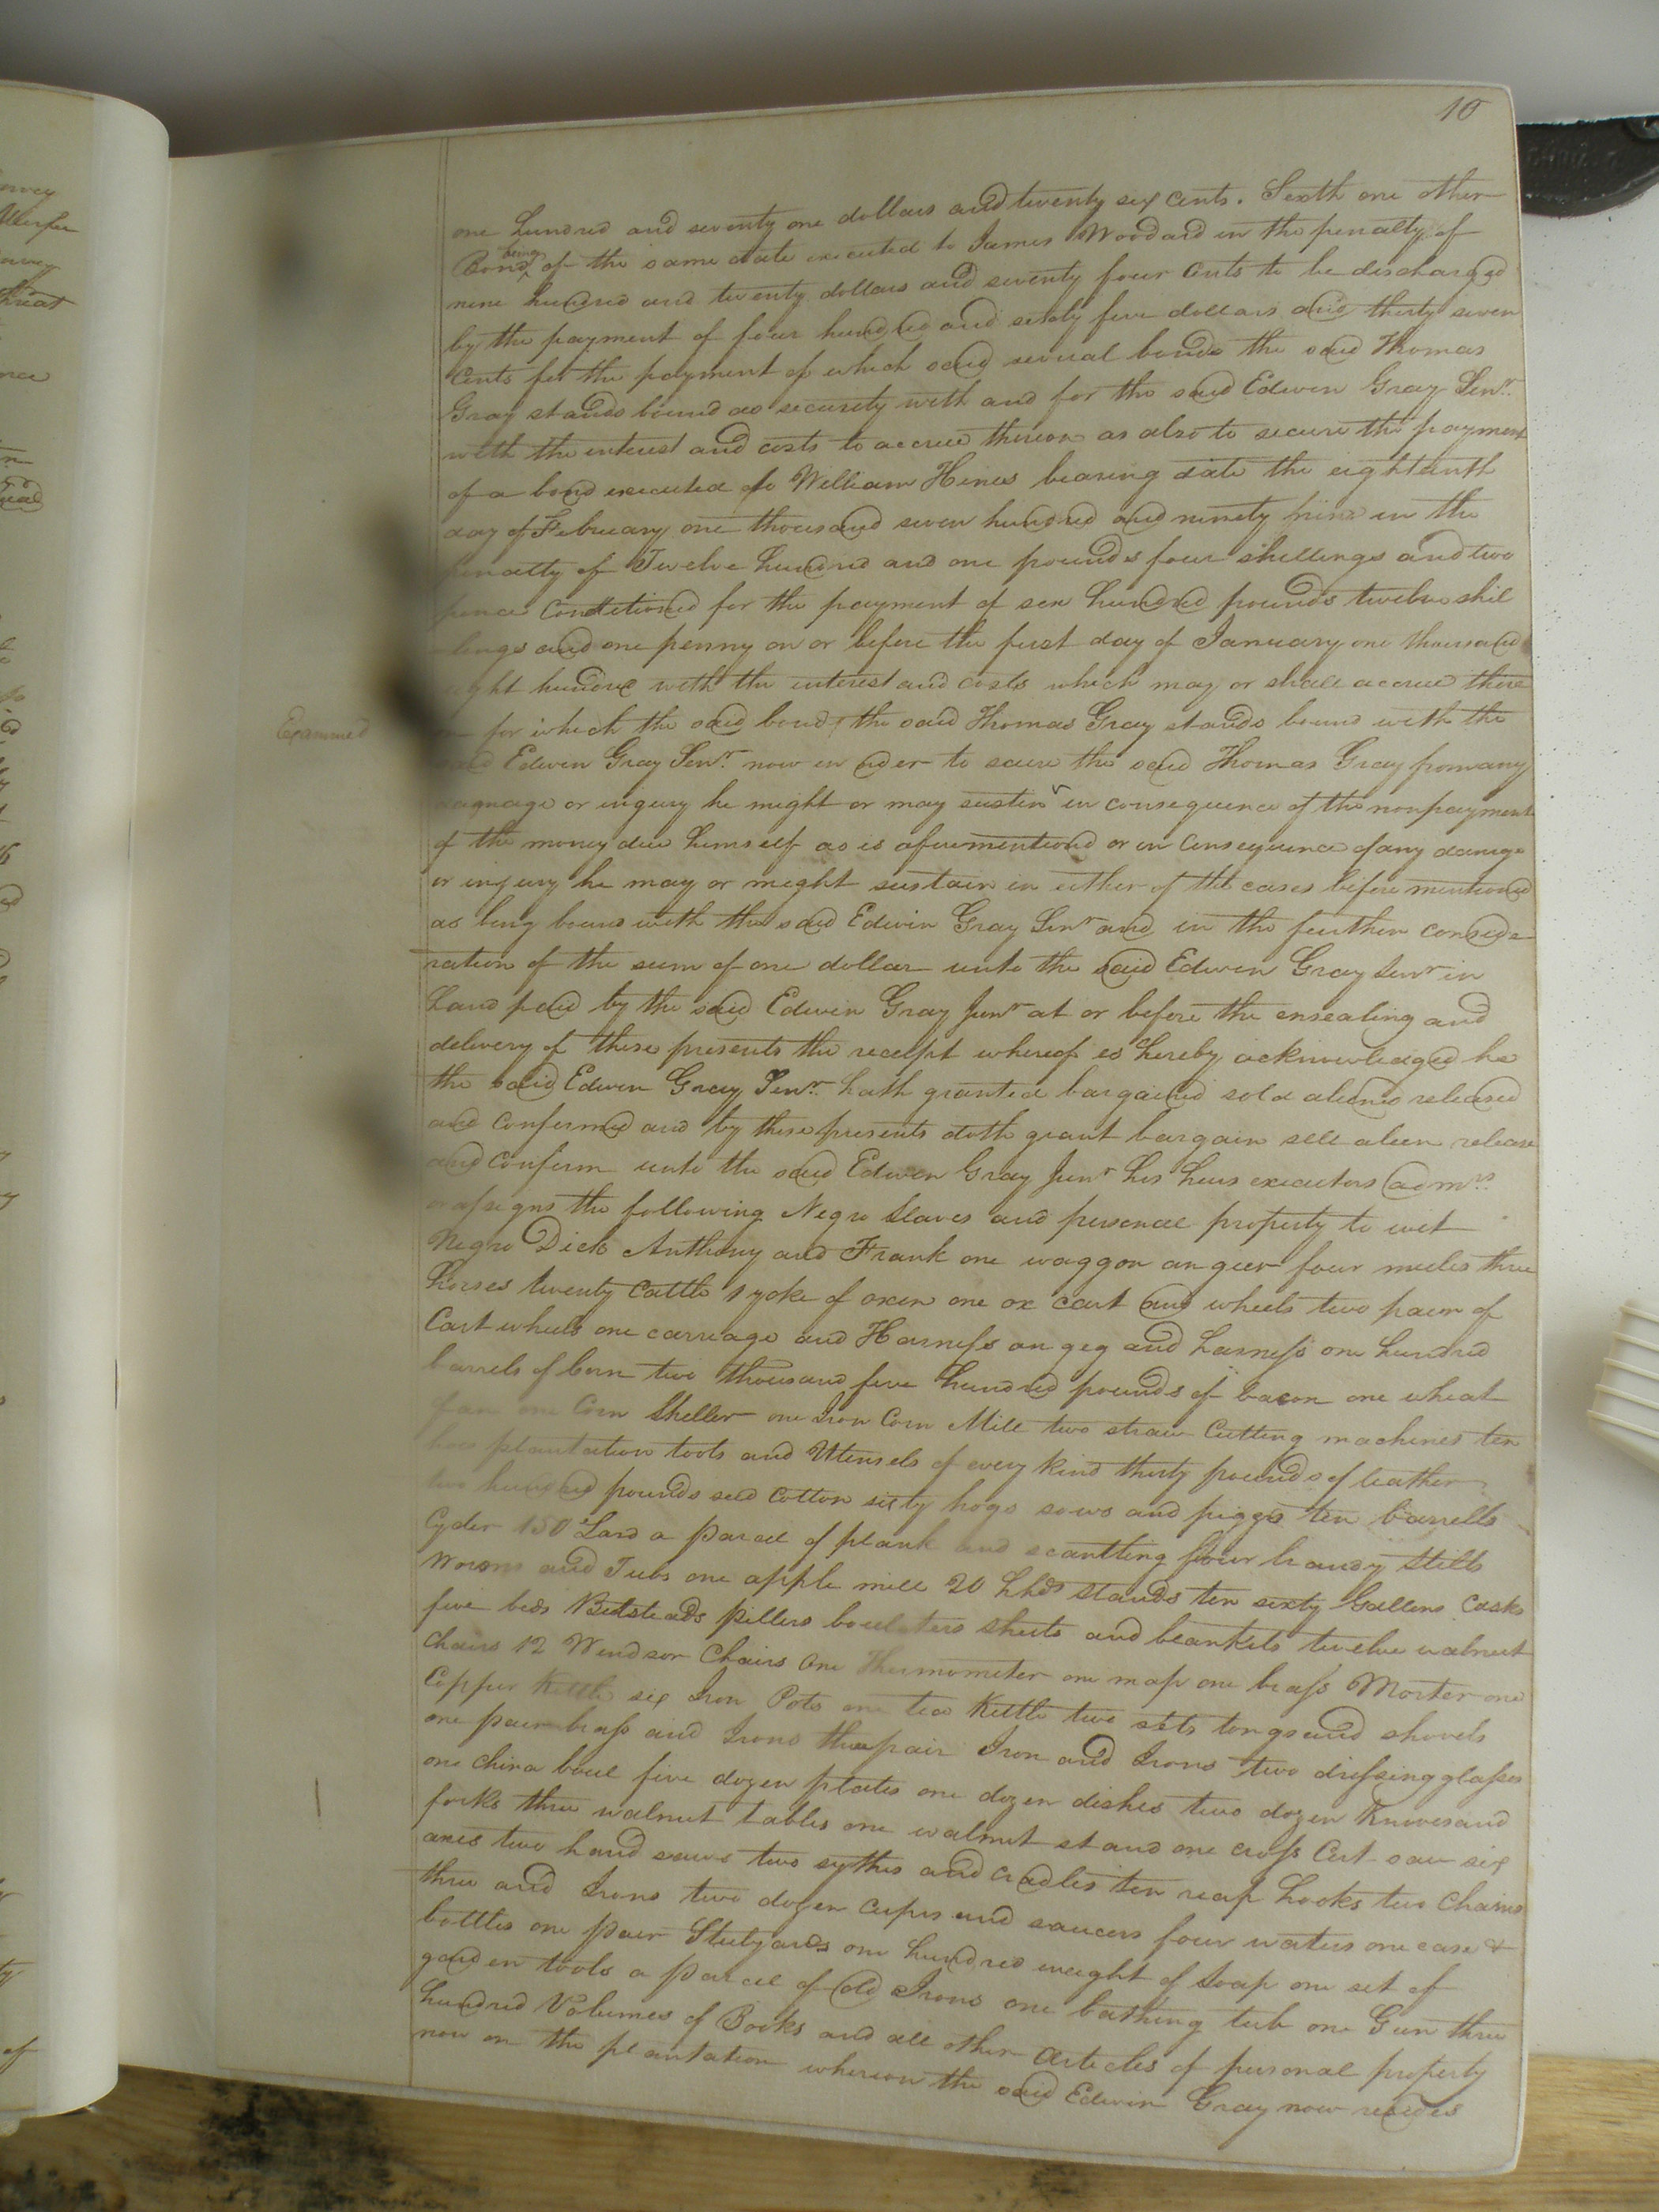 10
one hundred and seventy one dollars and twenty six Cents. Sixth one other
Bond being of the same date executed to James Woodard in the penalty of
nine hundred and twenty dollars and seventy four Cents to be discharged
by the payment of four hundred and sixty five dollars and thirty seven
Cents for the payment of which said several bonds the said Thomas
Gray stands bound as security with and for the said Edwin Gray Senr.
with the interest and costs to accrue thereon as also to secure the payment
of a bond executed to William Hines bearing date the eighteenth
day of February one thousand seven hundred and ninety nine in the
penalty of Twelve hundred and one pounds four shillings and two
pence Conditioned for the payment of six hundred pounds twelve shil
lings and one penny on or before the first day of January one thousand
eight hundred with the interest and costs which may or shall accrue there
on for which the said bond, the said Thomas Gray stands bound with the
Examined
said Edwin Gray Senr. now in order to secure the said Thomas Gray from any
damage or injury he might or may sustin in consequence of the nonpayment
of the money due himself as is aforementioned or in Consequence of any damage
or injury he may or might sustain in either of the cases before mentioned
as being bound with the said Edwin Gray Senr and in the further conside
ration of the sum of one dollar unto the said Edwin Gray Senr in
hand paid by the said Edwin Gray Junr at or before the ensealing and
delivery of these presents the receipt whereof is hereby acknowledged he
the said Edwin Gray Senr. hath granted bargained sold aliened released
and Confirmed and by these presents doth grant bargain sell alien release
and Confirm unto the said Edwin Gray Junr his heirs executors admrs.
or assigns the following Negro Slaves and personal property to wit
Negro Dick Anthony and Frank one waggon an geer four mules three
horses twenty Cattle 1 yoke of oxen one ox cart and wheels two pair of
Cart wheels one carriage and Harness an gig and harness one hundred
barrels of Corn two thousand five hundred pounds of bacon one wheat
fan one Corn Sheller one Iron Corn Mill two straw Cutting machines ten
hoes plantation tools and Utensels of every kind thirty pounds of leather
two hundred pounds seed Cotton sixty hogs sows and piggs ten barrells
Cyder 150 Lard a parcel of plank and scantling four brandy Stills
Worms and Tubs one apple mill 20 hhds stands ten sixty Gallons Casks
five beds Bedsteads pillers boulsters sheets and blankets twelve walnut
Chairs 12 Windsor Chairs One Thermometer one map one brass Morter one
Copper Kettle six Iron Pots one tea Kettle two sets tongs and shovels
one pair brass and Irons three pair Iron and Irons two dressing glasses
one china boul five dozen plates one dozen dishes two dozen Knives and
forks three walnut tables one walnut stand one cross Cut saw six
axes two hand saws two sythes and cradles ten reap hooks two Chains
three and Irons two dozen cupes and saucers four waters one case &
bottles one pair Stelyards one hundred weight of Soap one set of
garden tools a parcel of old Irons one bathing tub one Gun three
hundred Volumes of Books and all other articles of personal property
now on the plantation whereon the said Edwin Gray now resides